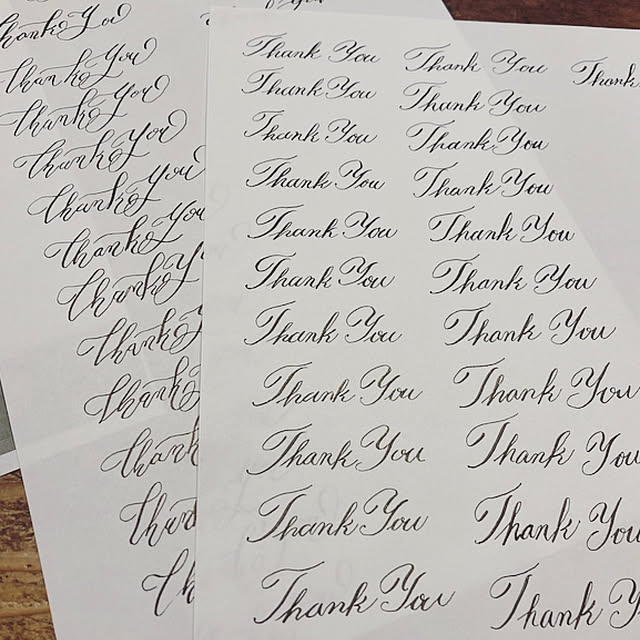 hank You
Thank You
Thank You
Thank You
Thank You
Thank You
Thank Y
Thank
Thank
Thank
Than
Th
Thank You Thank You Thank
Thank You Thank You
Thank You Thank You
Thank You Thank You
Thank You Thank You
Thank You Thank You
Thank You Thank You
Thank You Thank You
Thank You Thank You
Thank You Thank You
Thank You Thank Y